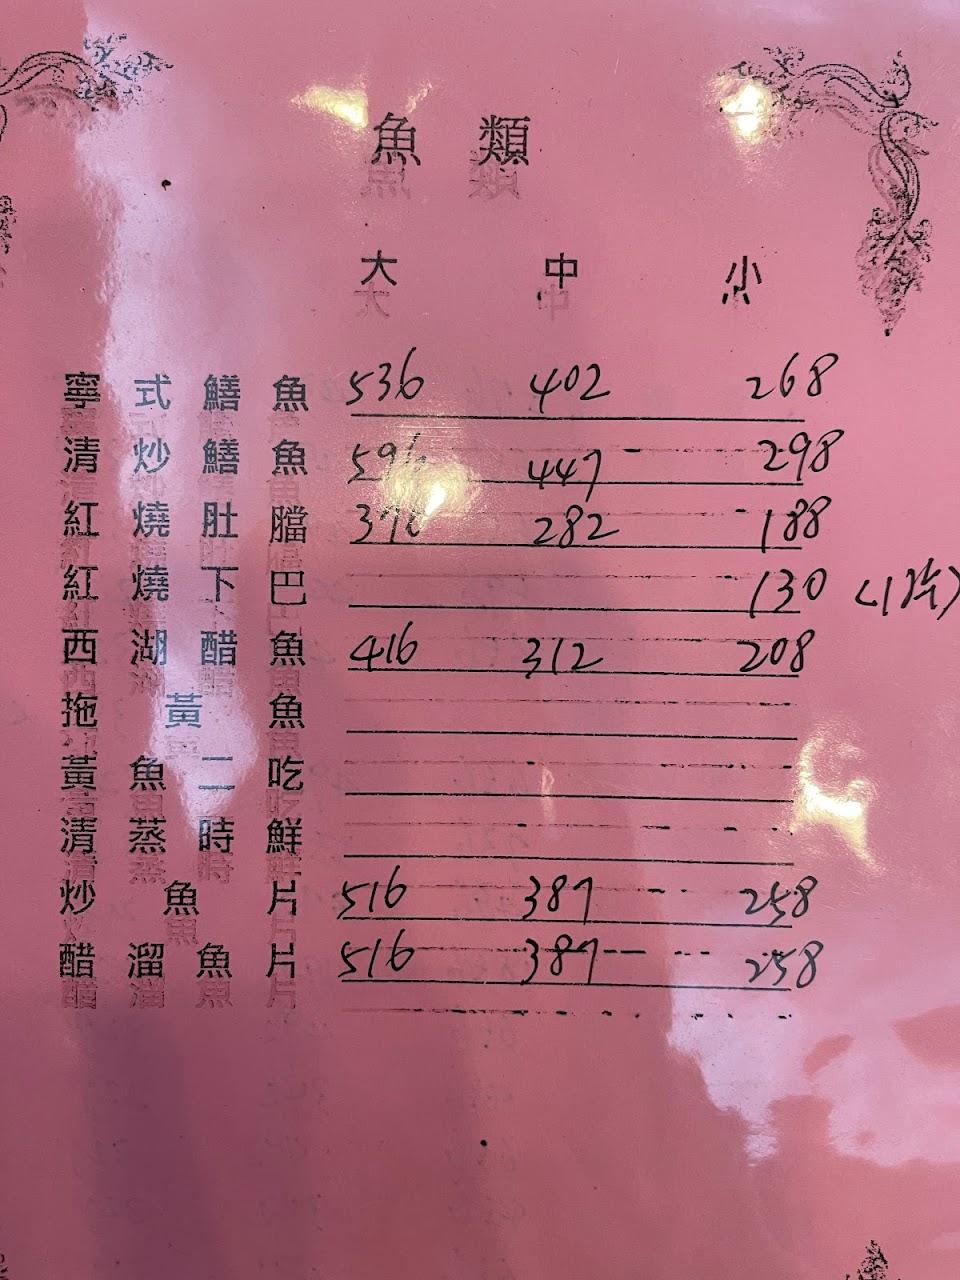 魚類
大 中 小
寧式鱔魚 536 402 268
清炒鱔魚 596 447 298
紅燒肚膛 376 282 188
紅燒下巴 130 (1片)
西湖醋魚 416 312 208
拖黃魚
黃魚二吃
清蒸時鮮
炒魚片 516 387 258
醋溜魚片 516 387 258